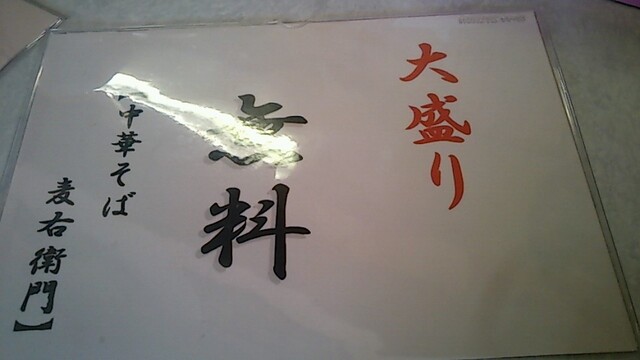 大盛り
無料
【中華そば
麦右衛門】